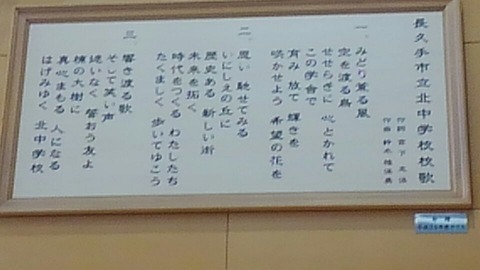 長久手市立北中学校校歌
作詞
作曲 鈴木
一、みどり薫る風
空を渡る鳥
せせらぎに 心とかれて
この学舎で
育み 放て 輝きを
咲かせよう 希望の花を
二、思い 馳せてみる
いにしえの丘に
歴史ある 新しい街
未来を拓く
時代をつくる わたしたち
たくましく 歩いてゆこう
三、響き渡る歌
そして笑い声
迷いなく 誓おう 友よ
楝の大樹に
真心まもる 人になる
はげみゆく 北中学校